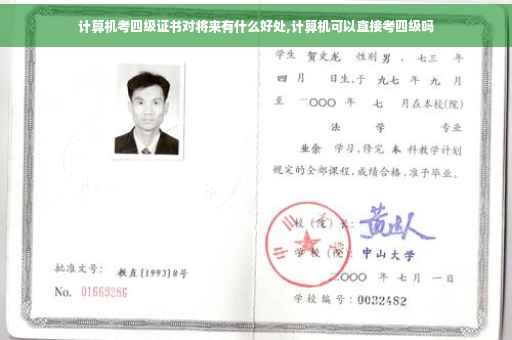 计算机考四级证书对将来有什么好处,计算机可以直接考四级吗
学生 贺文龙 性别 男 、七三 年
四 月 日生,于 九七 年 九 月
至 二〇〇〇 年 七 月在本校(院)
法 学 专业
业余 学习,修完 本 科教学计划
规定的全部课程,成绩合格,准予毕业。
校(院)长:
学校(院): 中山大学
二〇〇〇 年 七 月 一 日
学校编号: 0032482
批准文号: 教直(1993)8号
No. 01669286